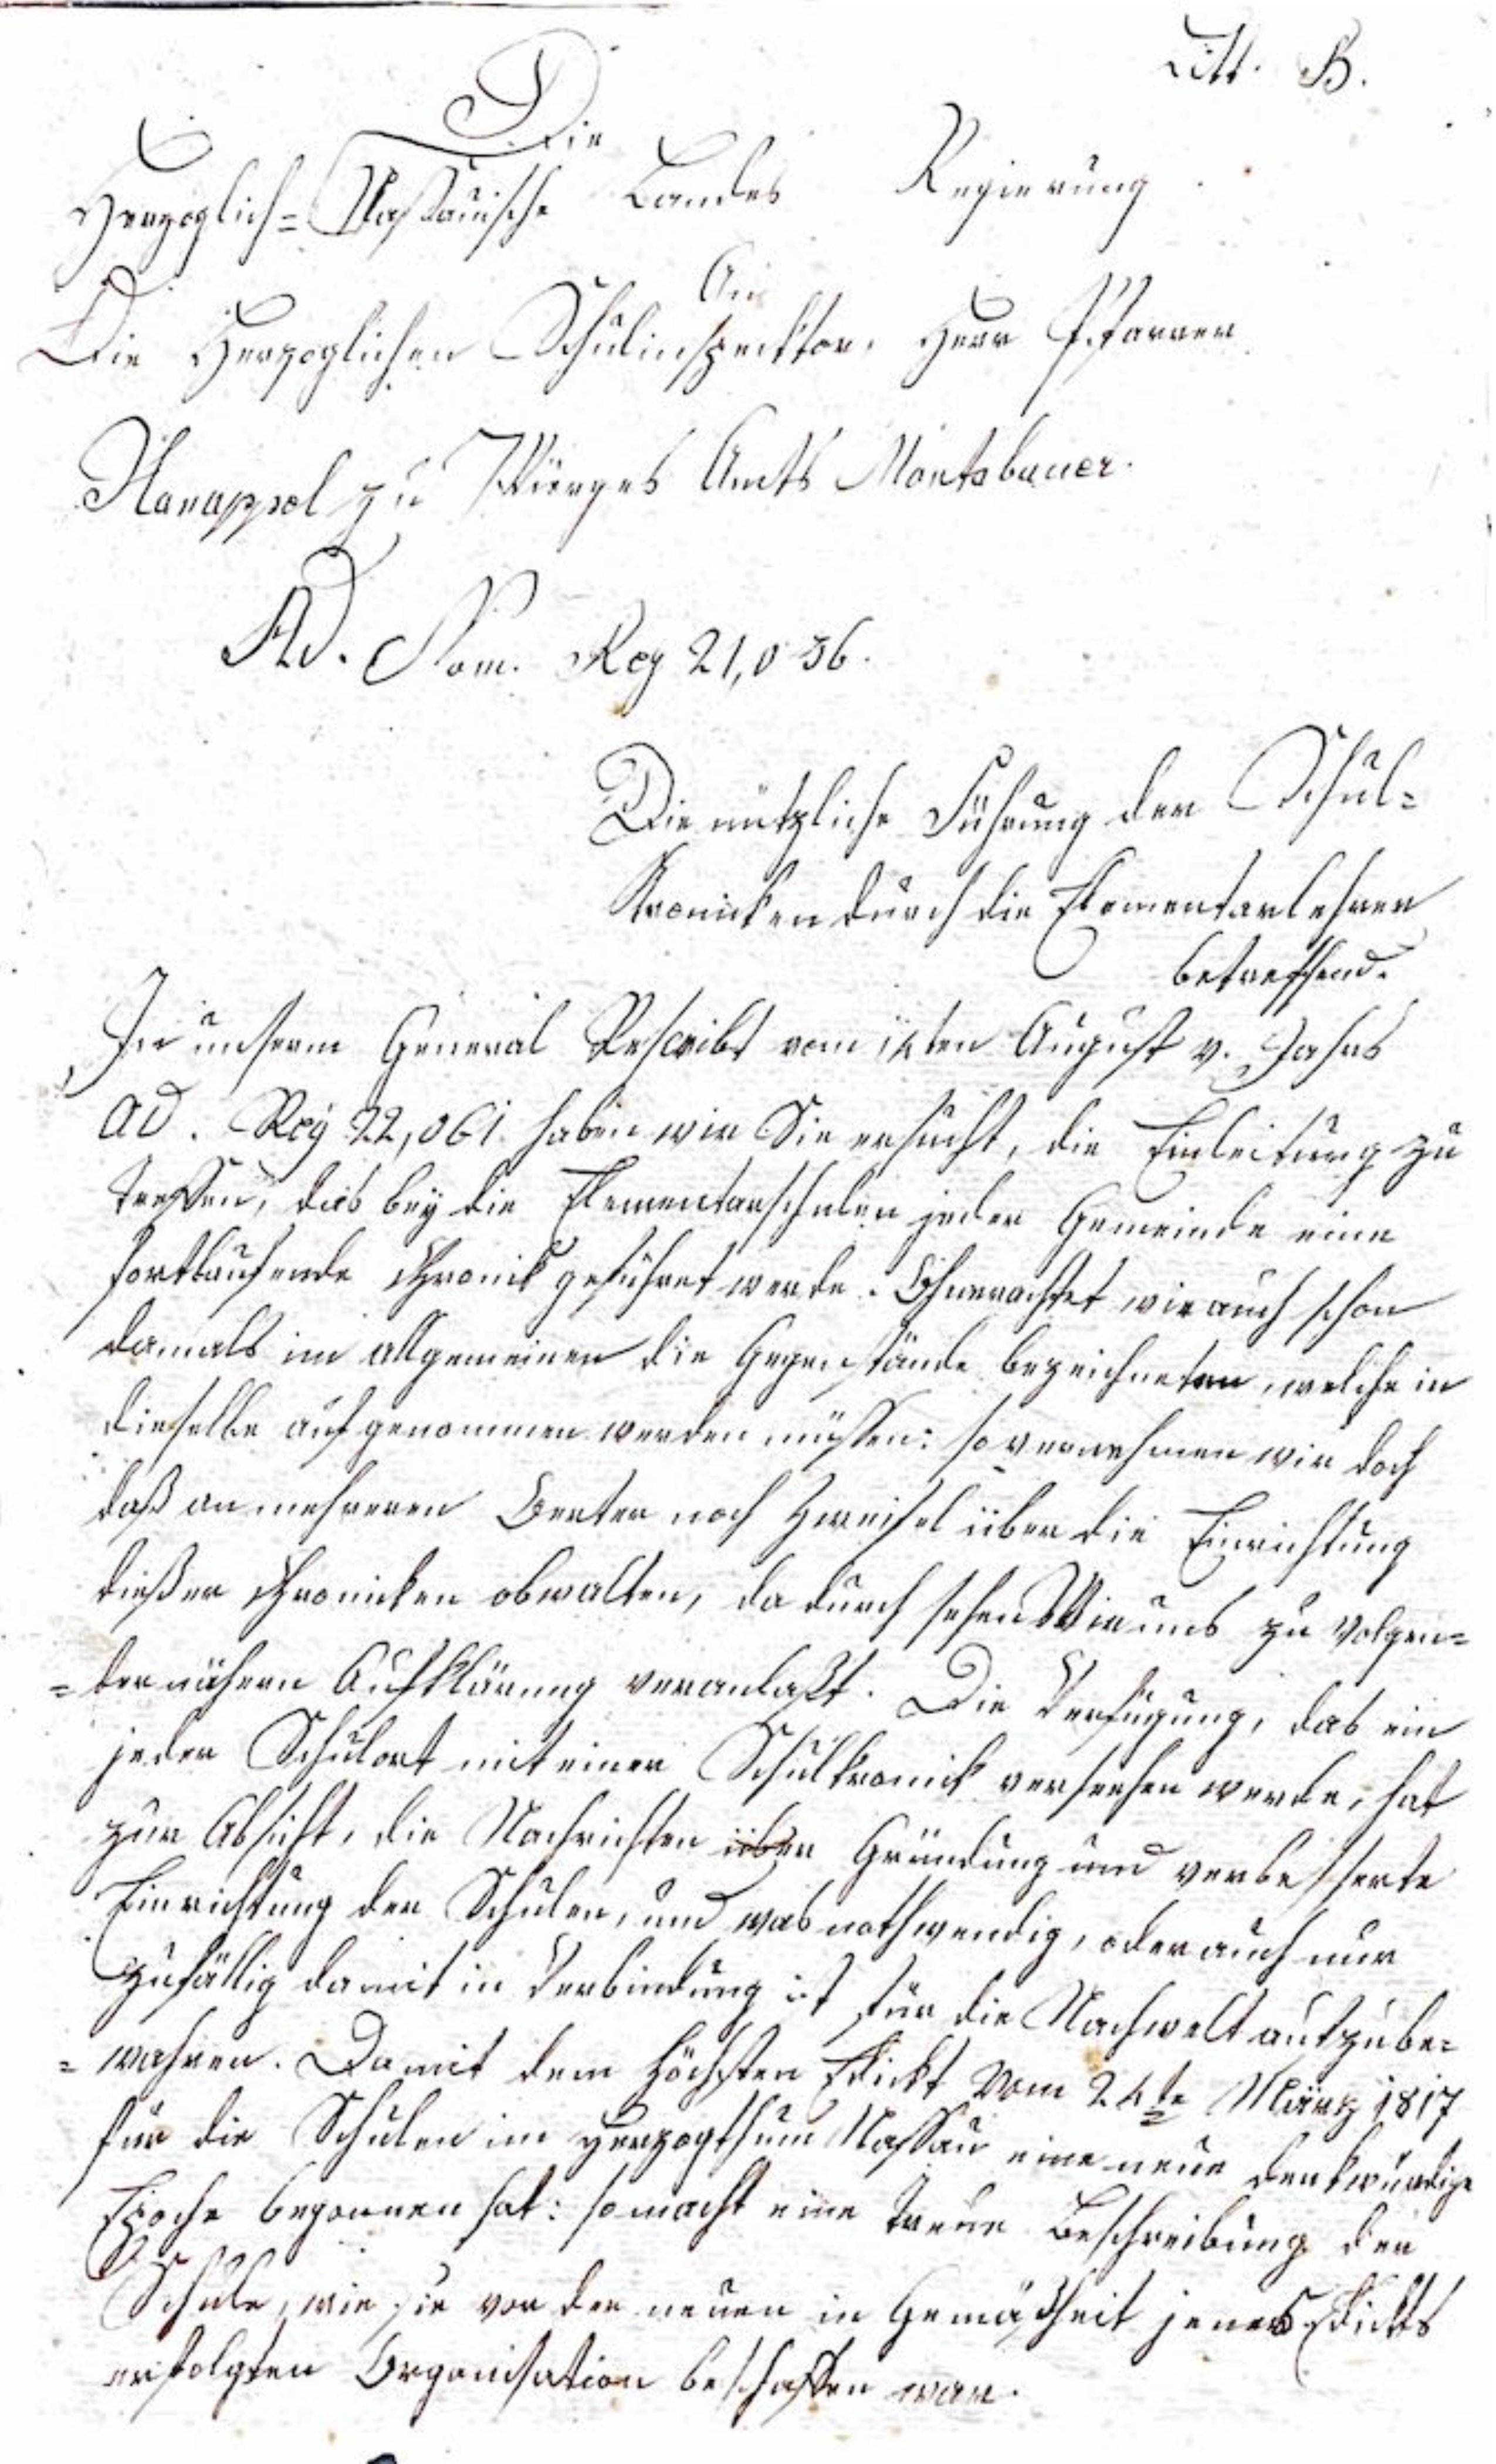 Litt. B.
Die
Herzoglich-Nassauische Landes Regierung
An
Die Herzoglichen Schulinspecktor, Herr Pfarrer
Hanappel zu Wirges Amts Montabauer.
Ad. Nom. Reg 21,036.
Die nützliche Führung der Schul=
Kronicken durch die Elementarlehrer
betreffend.
In unserm General Rescribt vom 14ten August v. Jahrs
ad. Reg 22,061 haben wir Sie ersucht, die Einleitung zu
treffen, das bey die Elementarschulen jeder Gemeinde eine
fortlaufende Chronick geführet werde. Ohnerachtet wir auch schon
damals im allgemeinen die Gegenstände bezeichneten, welche in
dieselbe aufgenommen werden müssen: so vernehmen wir doch
daß an mehreren Oerter noch Zweifel über die Einrichtung
dießer Chronicken obwalten, dadurch sehen Wir uns zu volgen=
=der nähern Aufklärung veranlaßt. Die Verfügung, das ein
jeder Schulort mit einer Schulkronick versehen werde, hat
zur Absicht, die Nachrichten über Gründung und verbesserte
Einrichtung der Schulen, und was nothwendig, oder auch nur
zufällig damit in Verbindung ist für die Nachwelt aufzube=
=wahren. Da mit dem höchsten Edickt vom 24te März 1817
für die Schulen im Herzogthum Nassau eine neue denkwürdige
Epoche begonnen hat: so macht eine treue Beschreibung der
Schule, wie sie vor der neuen in Gemäßheit jenes Edickts
erfolgten Organisation beschaffen war.